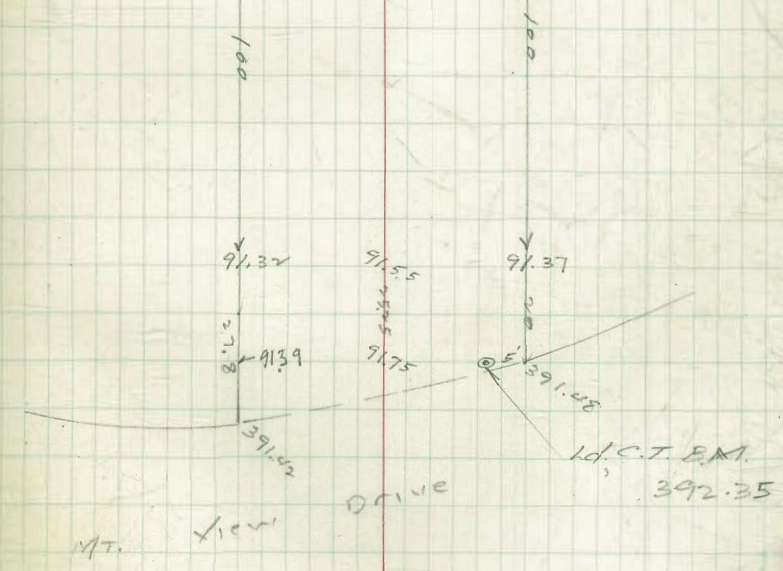 100
100
91.32
91.55
91.37
20
27.8
91.39
91.75
5'
391.48
391.42
Ld. C.T. B.M.
392.35
Mt. View Drive